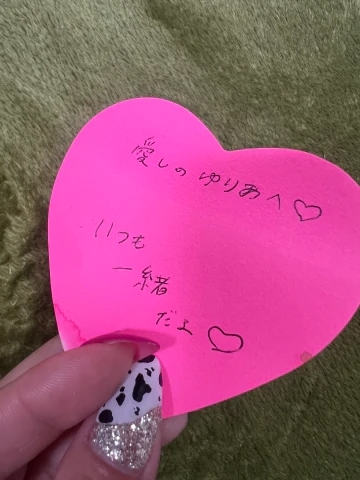 愛しのゆりあへ♡
いつも
一緒
だよ♡